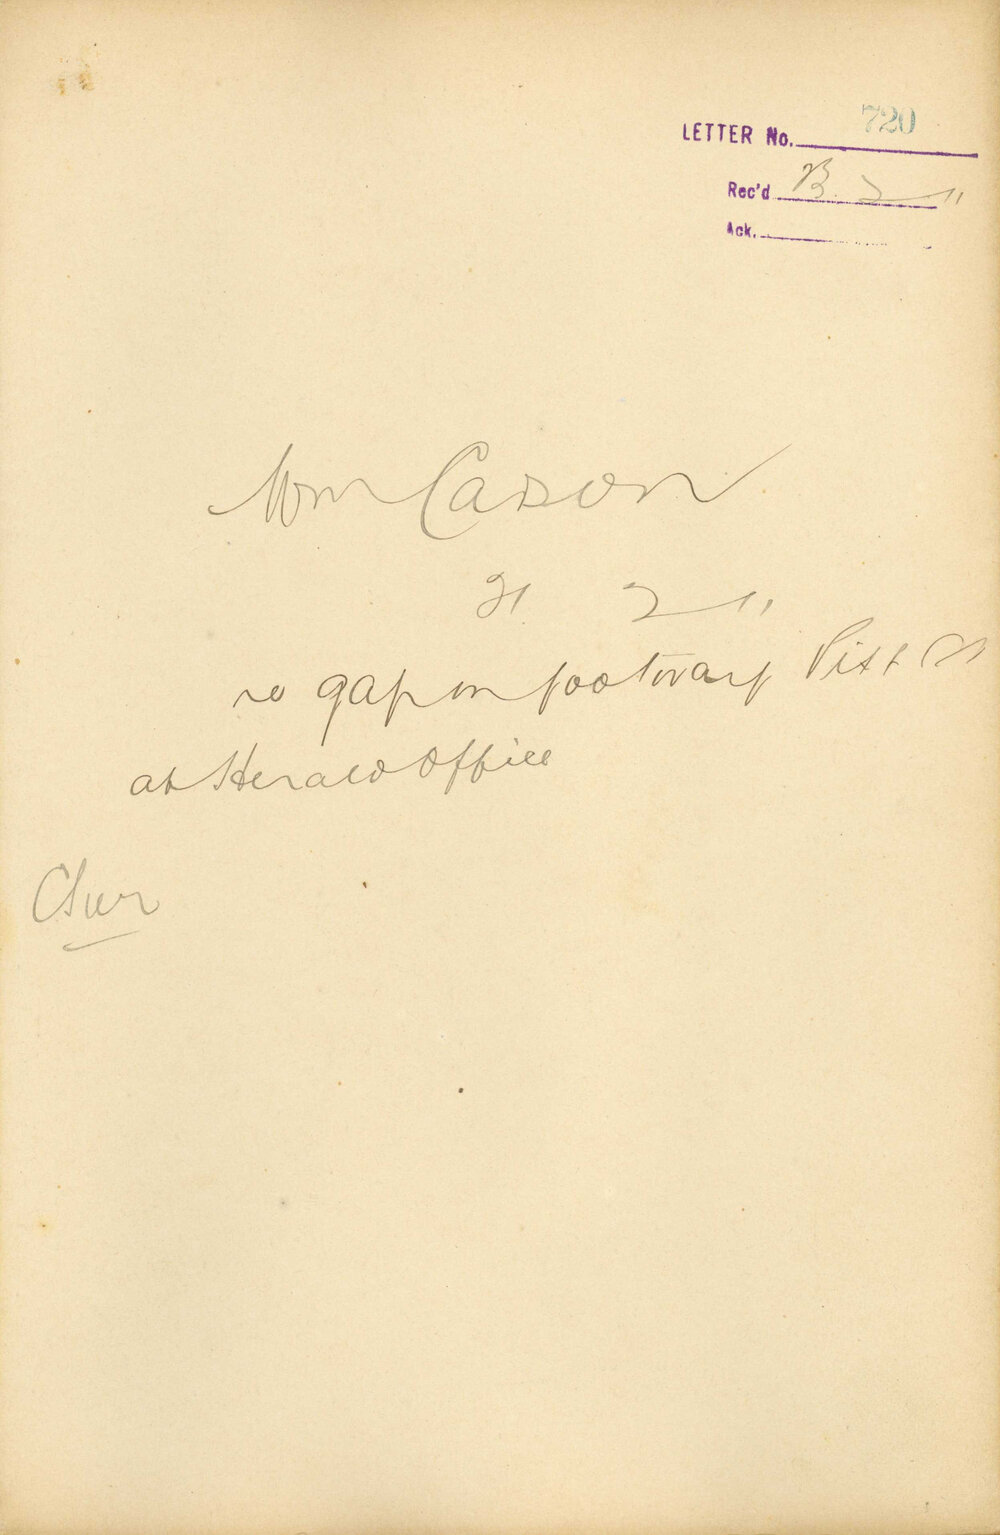 LETTER No. 720
Rec'd 2 11
Ack.
Wm Cason
21 2 11
re gap in footway Pitt St
at Herald Office